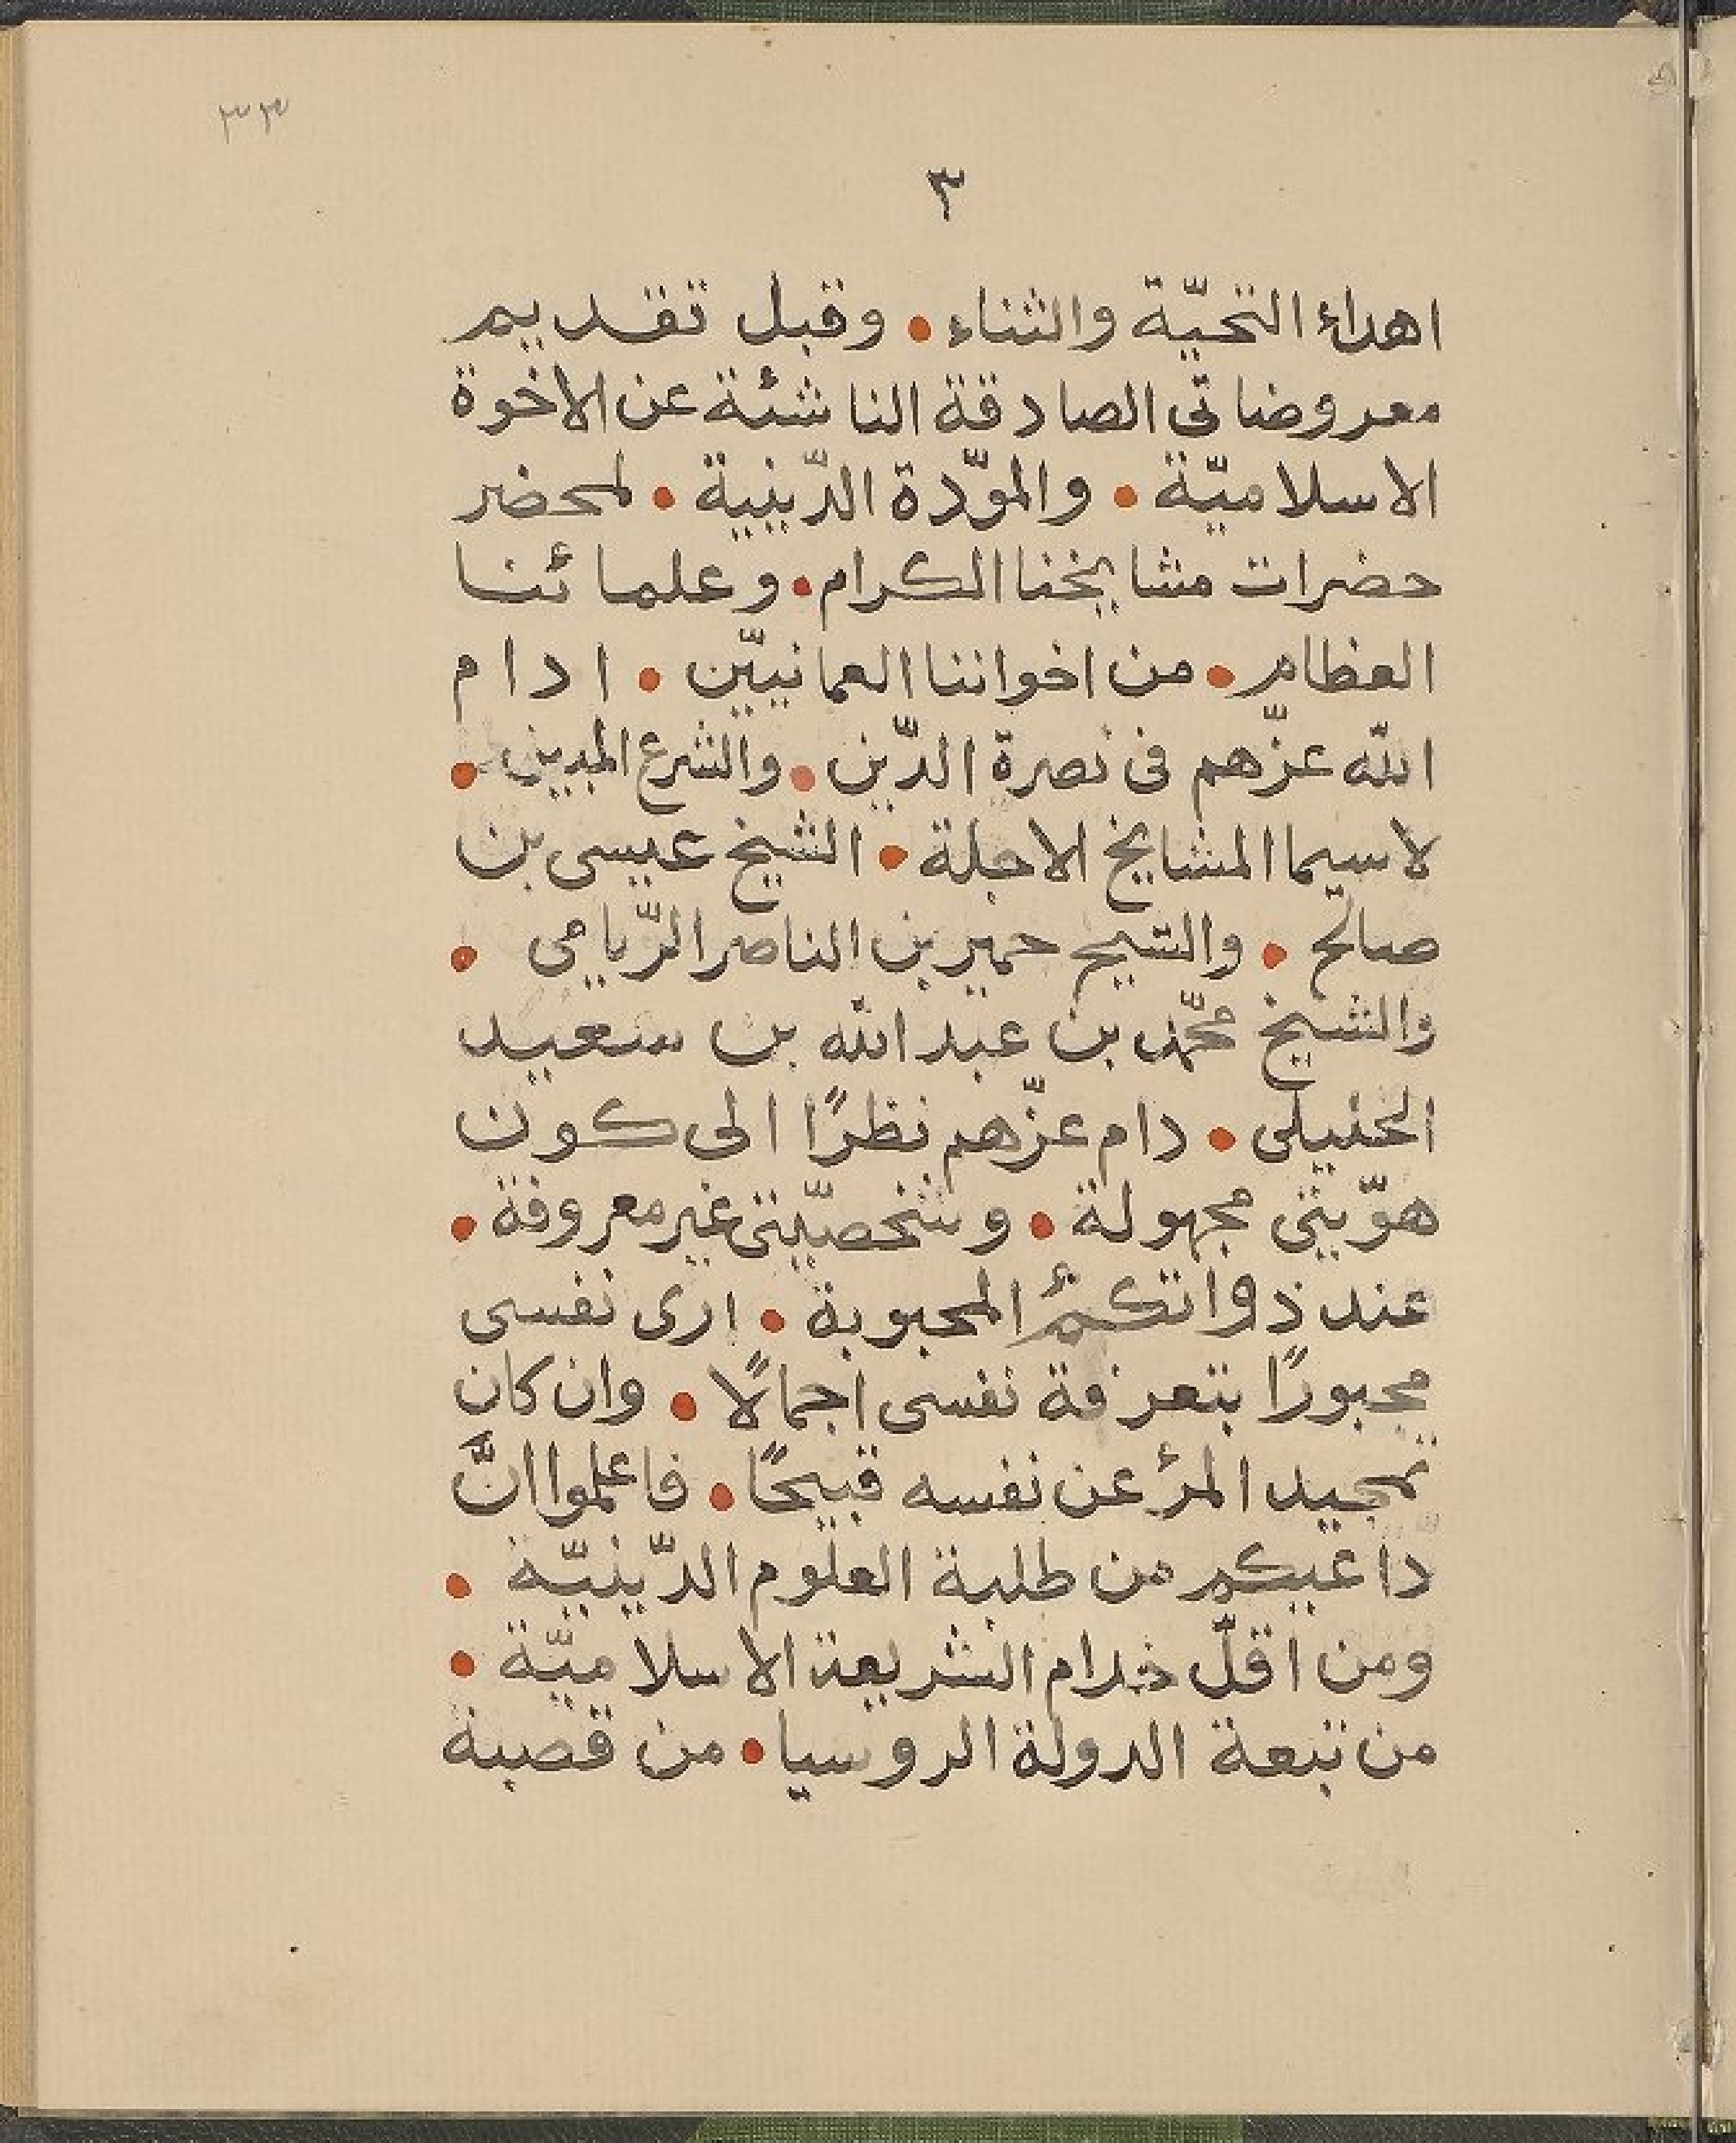 ٣٣
٣
اهداء التحيّة والثناء • وقبل تقديم
معروضاتى الصادقة الناشئة عن الاخوة
الاسلاميّة • والمودّة الدّينية • لمحضر
حضرات مشايخنا الكرام • وعلمائنا
العظام • من اخواننا العمانيّين • ادام
الله عزّهم فى نصرة الدّين • والشرع المبين •
لاسيما المشايخ الاجلة • الشيخ عيسى بن
صالح • والشيخ حمير بن الناصر الرّيامى •
والشيخ محمّد بن عبد الله بن سعيد
الخنيلى • دام عزّهم نظرًا الى كون
هوّيتى مجهولة • وشخصيّتى غير معروفة •
عند ذواتكم المحبوبة • ارى نفسى
مجبورًا بتعرفة نفسى اجمالًا • وان كان
تمجيد المرأ عن نفسه قبيحًا • فاعلموا انَّ
داعيكم من طلبة العلوم الدّينيّة •
ومن اقلّ خدام الشريعة الاسلاميّة •
من تبعة الدولة الروسيا • من قصبة